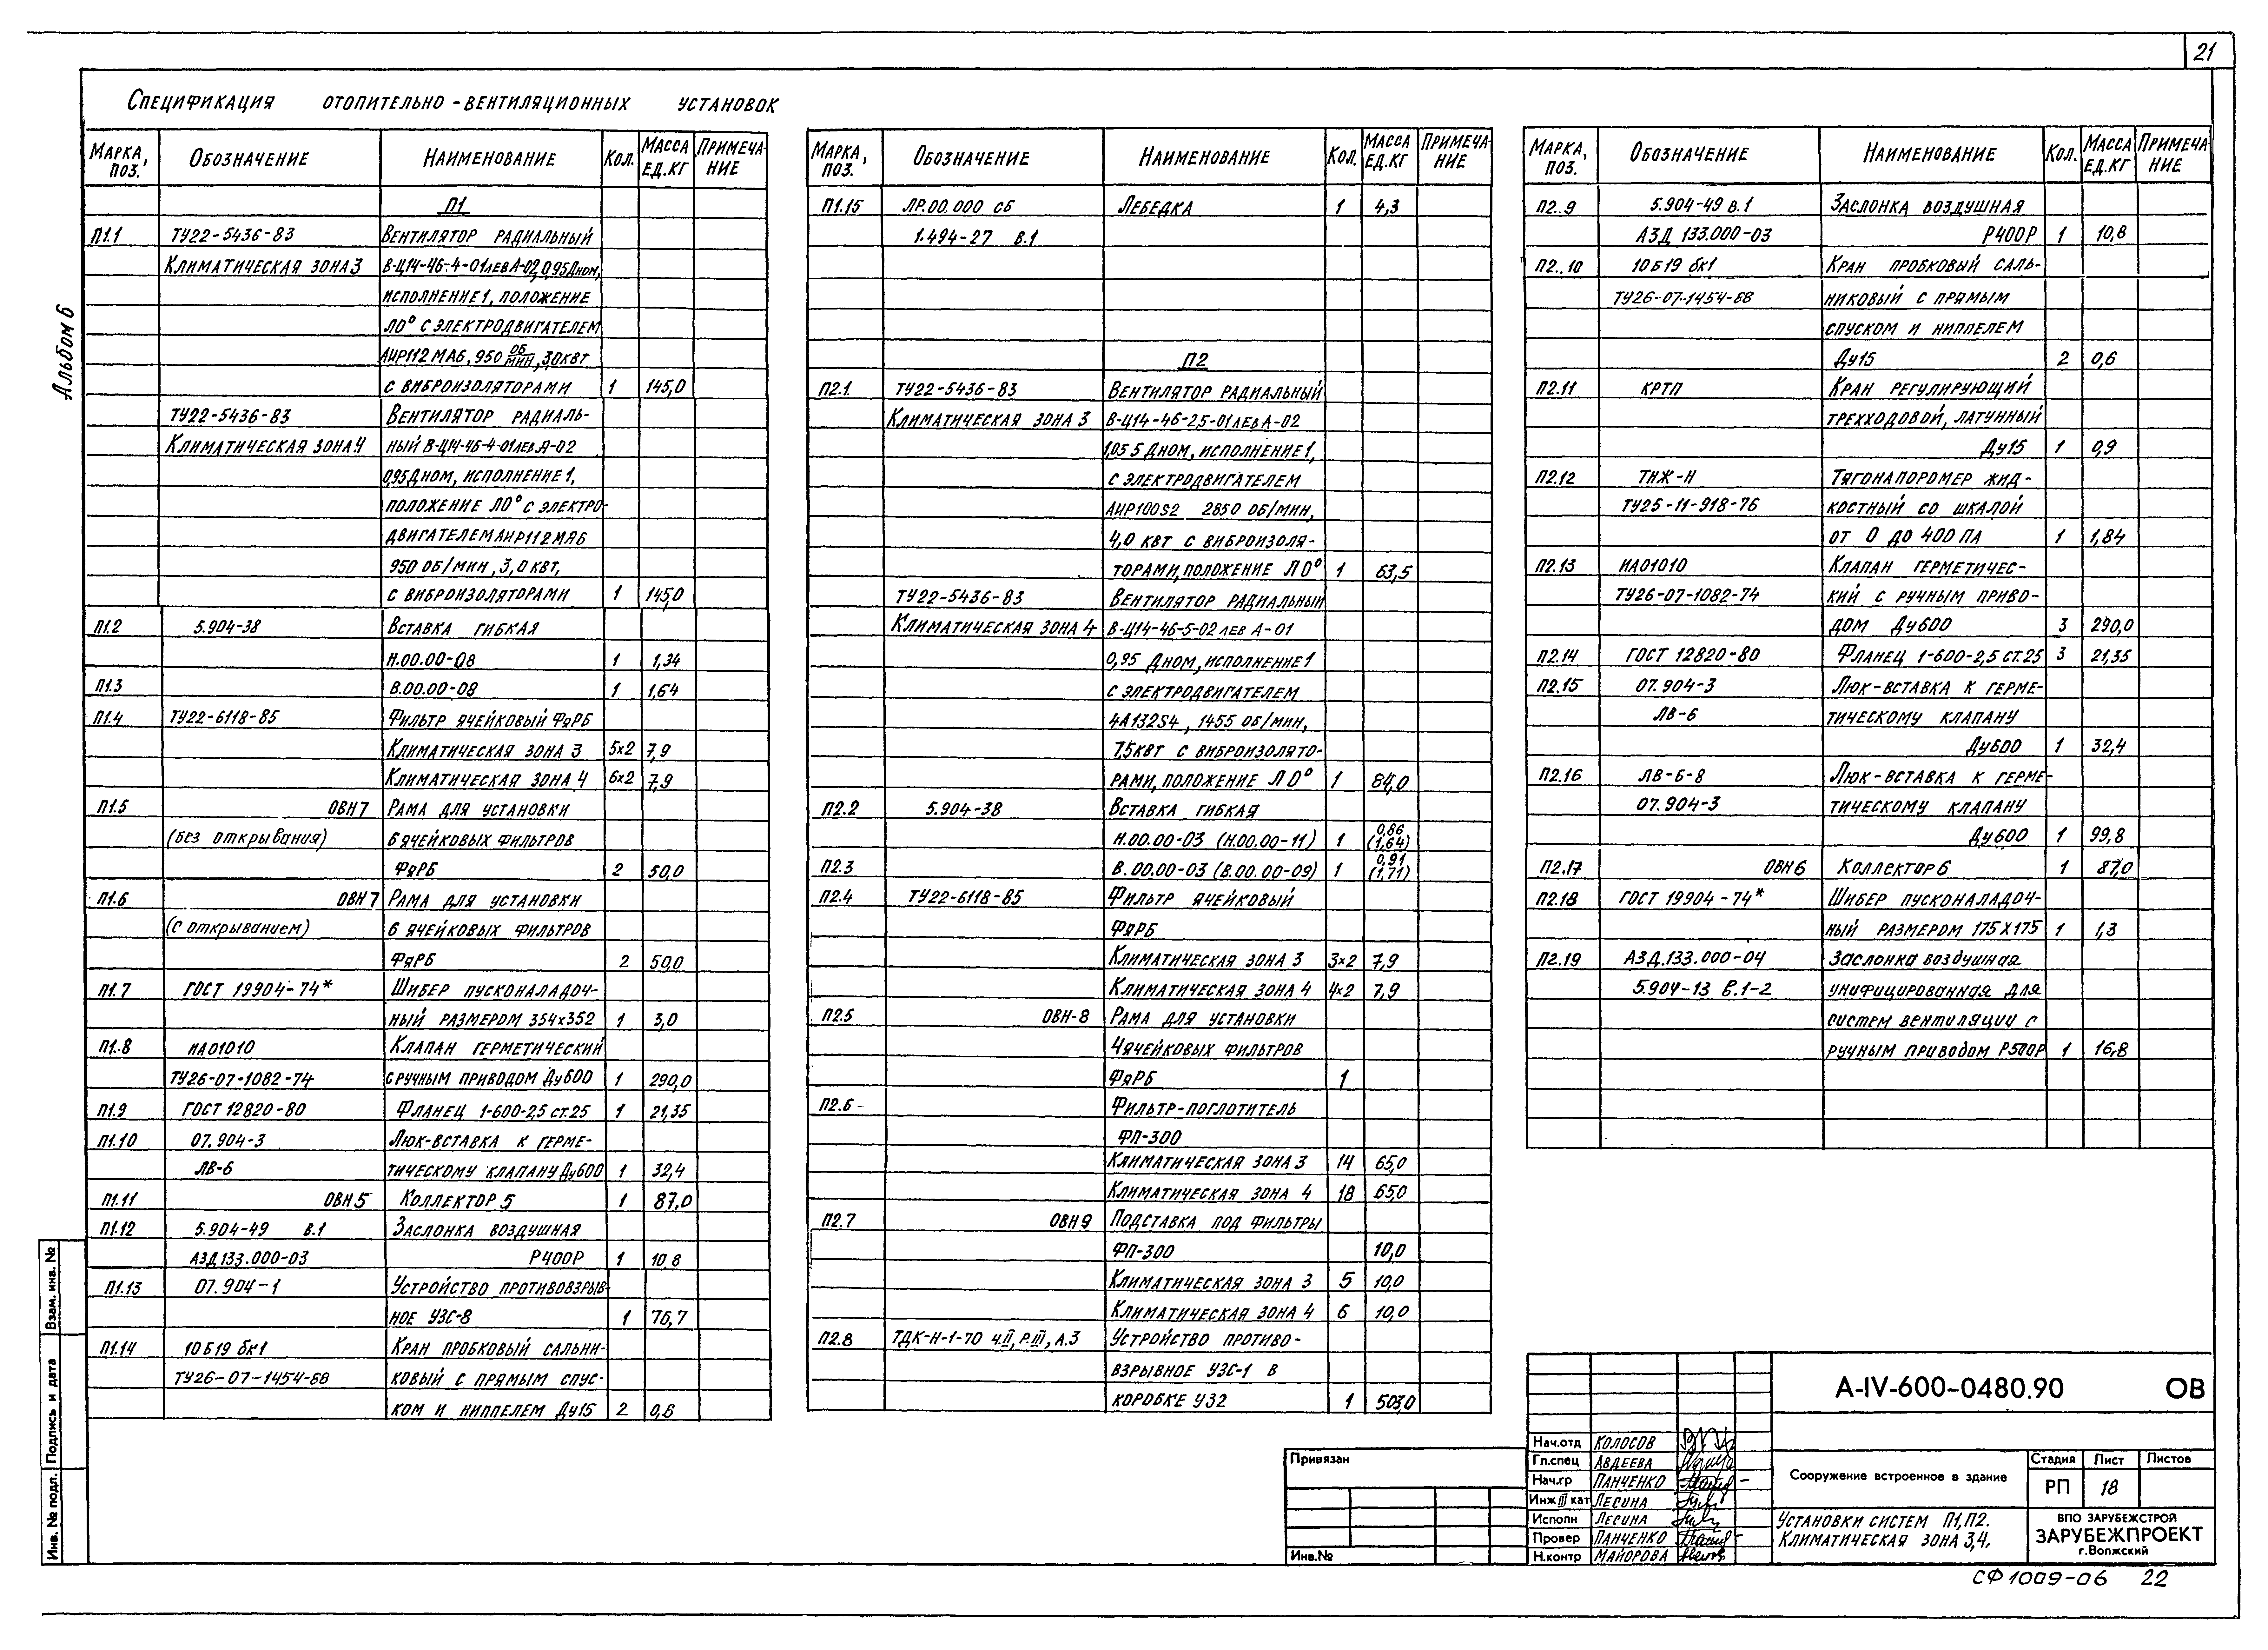 21
Альбом 6
Спецификация отопительно-вентиляционных установок
Марка, поз. Обозначение Наименование Кол. Масса ед.кг Примечание
П1
П1.1 ТУ22-5436-83 Вентилятор радиальный
Климатическая зона 3 В-Ц14-46-4-01лев А-02, 0,95 Дном,
исполнение 1, положение
Л0° с электродвигателем
АИР112МА6, 950 об/мин, 3,0кВт
с виброизоляторами 1 145,0
ТУ22-5436-83 Вентилятор радиаль-
Климатическая зона 4 ный В-Ц14-46-4-01лев А-02
0,95 Дном, исполнение 1,
положение Л0° с электро-
двигателем АИР112МА6
950 об/мин, 3,0 кВт,
с виброизоляторами 1 145,0
П1.2 5.904-38 Вставка гибкая
Н.00.00-08 1 1,34
П1.3 В.00.00-08 1 1,64
П1.4 ТУ22-6118-85 Фильтр ячейковый ФяРБ
Климатическая зона 3 5х2 7,9
Климатическая зона 4 6х2 7,9
П1.5 ОВН7 Рама для установки
(без открывания) 6 ячейковых фильтров
ФяРБ 2 50,0
П1.6 ОВН7 Рама для установки
(с открыванием) 6 ячейковых фильтров
ФяРБ 2 50,0
П1.7 ГОСТ 19904-74* Шибер пусконаладоч-
ный размером 354х352 1 3,0
П1.8 ИА01010 Клапан герметический
ТУ26-07-1082-74 с ручным приводом Ду600 1 290,0
П1.9 ГОСТ 12820-80 Фланец 1-600-2,5 ст.25 1 21,35
П1.10 07.904-3 Люк-вставка к герме-
ЛВ-6 тическому клапану Ду600 1 32,4
П1.11 ОВН5 Коллектор 5 1 87,0
П1.12 5.904-49 в.1 Заслонка воздушная
АЗД133.000-03 Р400Р 1 10,8
П1.13 07.904-1 Устройство противовзрыв-
ное УЗС-8 1 76,7
П1.14 10Б19 бк1 Кран пробковый сальни-
ТУ26-07-1454-68 ковый с прямым спус-
ком и ниппелем Ду15 2 0,6
Марка, поз. Обозначение Наименование Кол. Масса ед.кг Примечание
П1.15 ЛР.00.000 сб Лебедка 1 4,3
1.494-27 в.1
П2
П2.1 ТУ22-5436-83 Вентилятор радиальный
Климатическая зона 3 В-Ц14-46-2,5-01лев А-02
1,055 Дном, исполнение 1,
с электродвигателем
АИР100S2 2850 об/мин,
4,0 кВт с виброизоля-
торами, положение Л0° 1 63,5
ТУ22-5436-83 Вентилятор радиальный
Климатическая зона 4 В-Ц14-46-5-02лев А-01
0,95 Дном, исполнение 1
с электродвигателем
4А132S4, 1455 об/мин,
7,5кВт с виброизолято-
рами, положение Л0° 1 84,0
П2.2 5.904-38 Вставка гибкая
Н.00.00-03 (Н.00.00-11) 1 0,86 (1,64)
П2.3 В.00.00-03 (В.00.00-09) 1 0,91 (1,71)
П2.4 ТУ22-6118-85 Фильтр ячейковый
ФяРБ
Климатическая зона 3 3х2 7,9
Климатическая зона 4 4х2 7,9
П2.5 ОВН-8 Рама для установки
4 ячейковых фильтров
ФяРБ 1
П2.6 Фильтр-поглотитель
ФП-300
Климатическая зона 3 14 65,0
Климатическая зона 4 18 65,0
П2.7 ОВН9 Подставка под фильтры
ФП-300 10,0
Климатическая зона 3 5 10,0
Климатическая зона 4 6 10,0
П2.8 ТДК-Н-1-70 ч.II, Р.III, А.3 Устройство противо-
взрывное УЗС-1 в
коробке У32 1 503,0
Марка, поз. Обозначение Наименование Кол. Масса ед.кг Примечание
П2.9 5.904-49 в.1 Заслонка воздушная
АЗД 133.000-03 Р400Р 1 10,8
П2.10 10Б19 бк1 Кран пробковый саль-
ТУ26-07-1454-68 никовый с прямым
спуском и ниппелем
Ду15 2 0,6
П2.11 КРТП Кран регулирующий
трехходовой, латунный
Ду15 1 0,9
П2.12 ТНЖ-Н Тягонапоромер жид-
ТУ25-11-918-76 костный со шкалой
от 0 до 400 Па 1 1,84
П2.13 ИА01010 Клапан герметичес-
ТУ26-07-1082-74 кий с ручным приво-
дом Ду600 3 290,0
П2.14 ГОСТ 12820-80 Фланец 1-600-2,5 ст.25 3 21,35
П2.15 07.904-3 Люк-вставка к герме-
ЛВ-6 тическому клапану
Ду600 1 32,4
П2.16 ЛВ-6-8 Люк-вставка к герме-
07.904-3 тическому клапану
Ду600 1 99,8
П2.17 ОВН6 Коллектор 6 1 87,0
П2.18 ГОСТ 19904-74* Шибер пусконаладоч-
ный размером 175х175 1 1,3
П2.19 АЗД.133.000-04 Заслонка воздушная
5.904-13 в.1-2 унифицированная для
систем вентиляции с
ручным приводом Р500Р 1 16,8
Взам. инв. №
Подпись и дата
Инв. № подл.
Привязан
Инв.№
Нач.отд Колосов
Гл.спец Авдеева
Нач.гр Панченко
Инж III кат Лесина
Исполн Лесина
Провер Панченко
Н.контр Майорова
А-IV-600-0480.90 ОВ
Сооружение встроенное в здание
Стадия Лист Листов
РП 18
Установки систем П1, П2.
Климатическая зона 3,4.
ВПО ЗАРУБЕЖСТРОЙ
ЗАРУБЕЖПРОЕКТ
г.Волжский
СФ1009-06 22